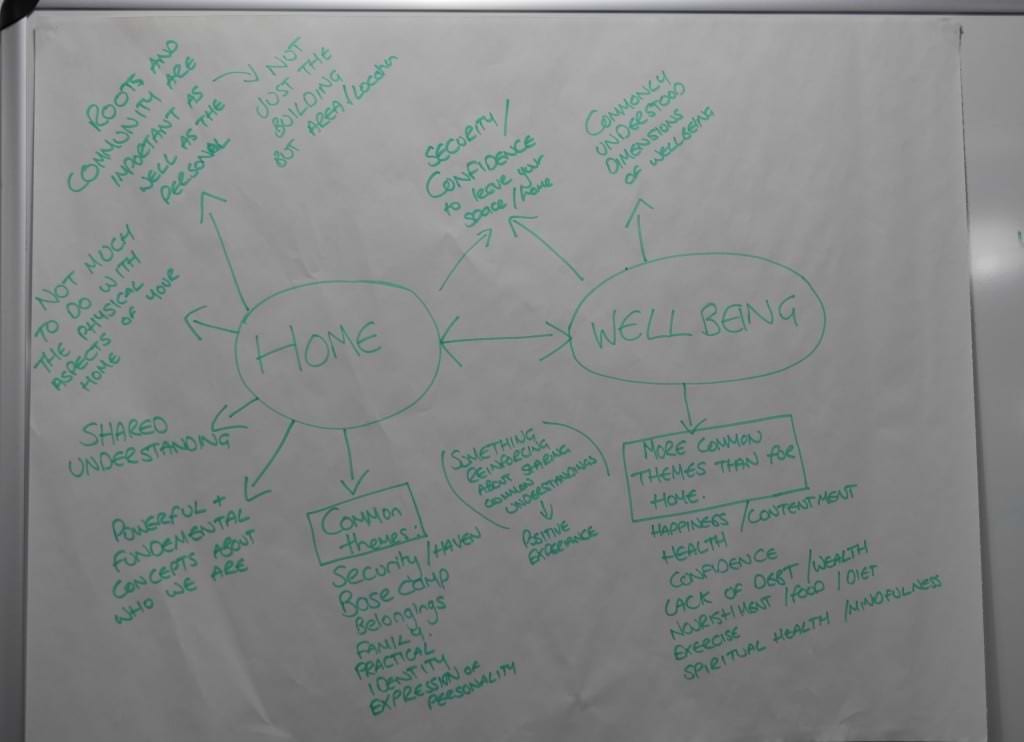 ROOTS AND
COMMUNITY ARE
IMPORTANT AS
WELL AS THE
PERSONAL
NOT
JUST THE
BUILDING
BUT AREA/Location
SECURITY/
CONFIDENCE
to leave your
space/home
COMMONLY
UNDERSTOOD
DIMENSIONS
OF WELLBEING
NOT MUCH
TO DO WITH
THE PHYSICAL
ASPECTS OF YOUR
HOME
HOME
WELLBEING
SHARED
UNDERSTANDING
POWERFUL +
FUNDEMENTAL
CONCEPTS ABOUT
WHO WE ARE
Common
themes:
Security/HAVEN
Base camp
Belongings
FAMILY.
PRACTICAL
IDENTITY
EXPRESSION OF
PERSONALITY
SOMETHING
REINFORCING
ABOUT SHARING
COMMON
UNDERSTANDINGS
POSITIVE
EXPERIENCE
MORE COMMON
THEMES THAN FOR
HOME.
HAPPINESS /CONTENTMENT
HEALTH
CONFIDENCE
LACK OF DEBT /WEALTH
NOURISHMENT /FOOD / DIET
EXERCISE
SPIRITUAL HEALTH /MINDFULNESS